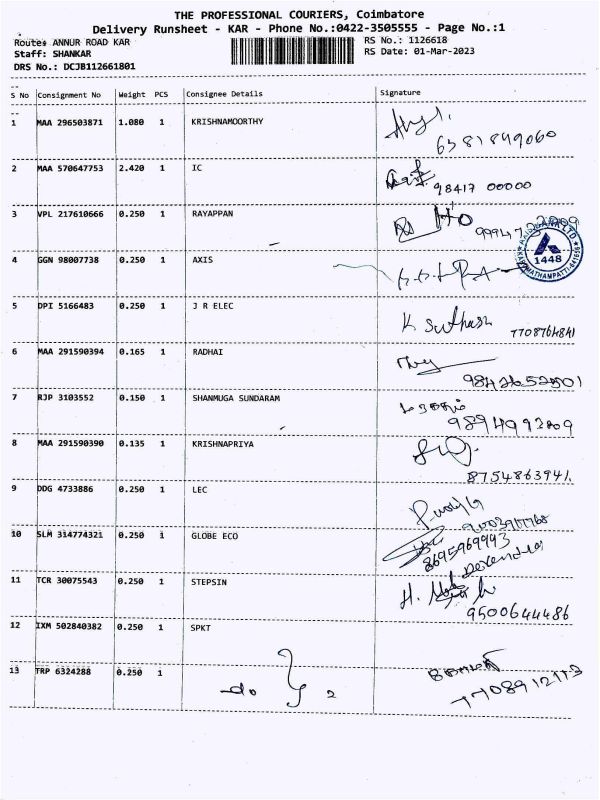 THE PROFESSIONAL COURIERS, Coimbatore
Delivery Runsheet - KAR - Phone No.:0422-3505555 - Page No.:1
Route: ANNUR ROAD KAR
RS No.: 1126618
Staff: SHANKAR
RS Date: 01-Mar-2023
DRS No.: DCJB112661801
S No Consignment No Weight PCS Consignee Details Signature
1 MAA 296503871 1.080 1 KRISHNAMOORTHY
6381849060
2 MAA 570647753 2.420 1 IC
98417 00000
3 VPL 217610666 0.250 1 RAYAPPAN
4 GGN 98007738 0.250 1 AXIS
1448
5 DPI 5166483 0.250 1 J R ELEC
K Suthash 7708764841
6 MAA 291590394 0.165 1 RADHAI
9842652801
7 RJP 3103552 0.150 1 SHANMUGA SUNDARAM
9894992809
8 MAA 291590390 0.135 1 KRISHNAPRIYA
8754863941.
9 DDG 4733886 0.250 1 LEC
10 SLM 314774321 0.250 1 GLOBE ECO
8695969993
Devendra
11 TCR 30075543 0.250 1 STEPSIN
9500644486
12 IXM 502840382 0.250 1 SPKT
13 TRP 6324288 0.250 1
-do 2
7708912113